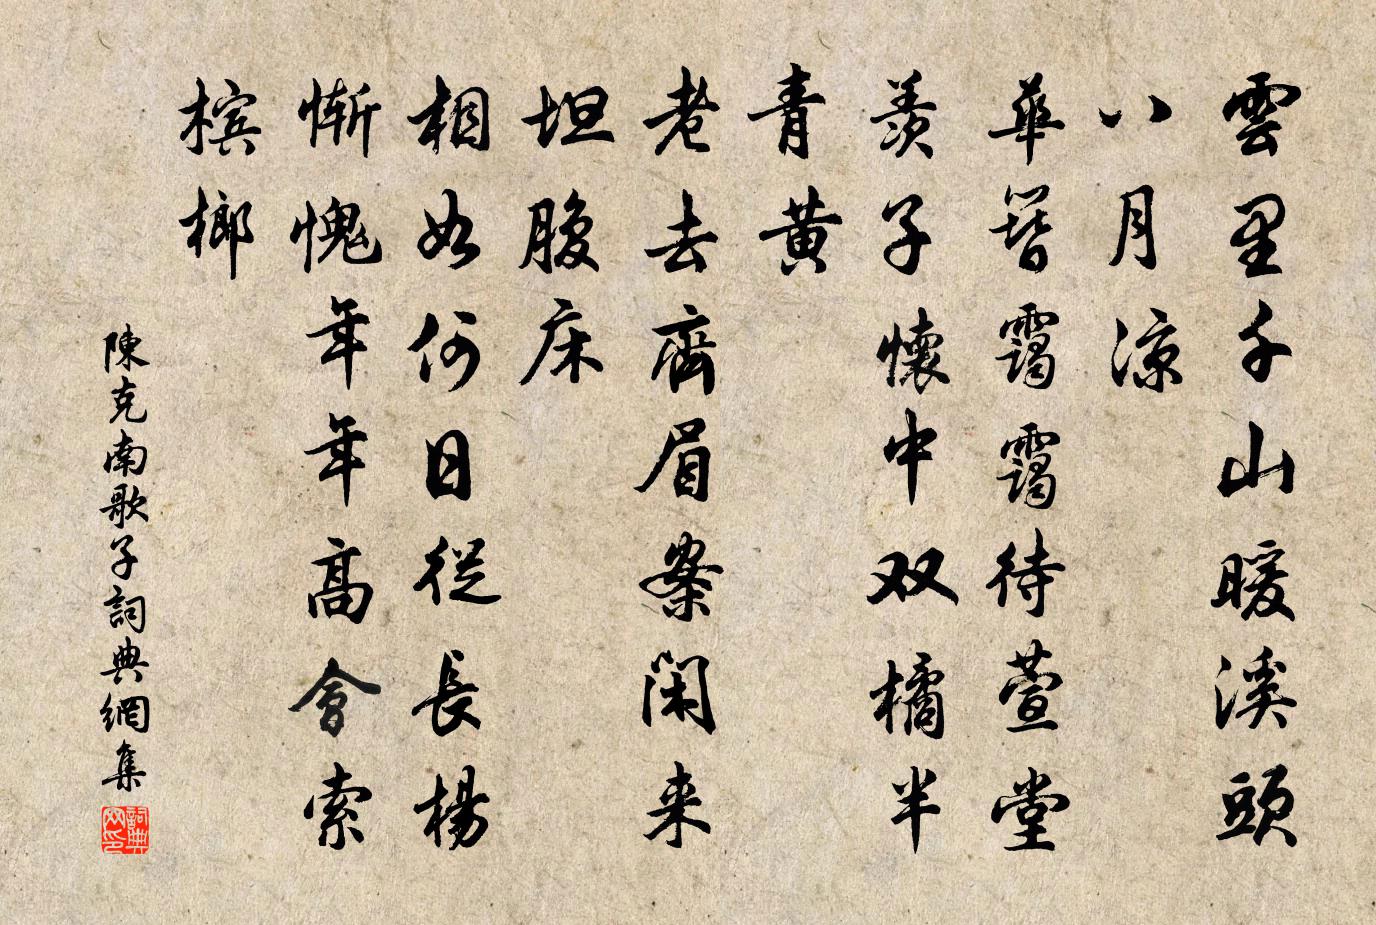 雲里千山暖溪頭
八月涼
華簪靄靄待萱堂
羨子懷中双橘半
青黄
老去齊眉案閑来
坦腹床
相如何日從長楊
慚愧年年高會索
檳榔
陳克南歌子詞典網集
詞典網印